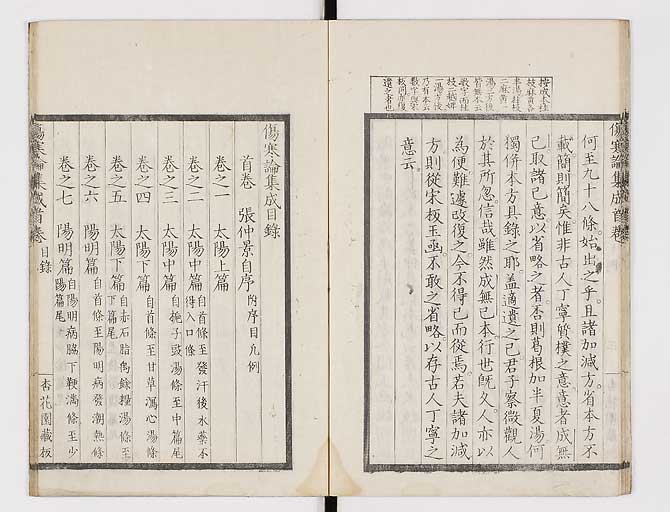 按成本桂
枝麻黄各
半湯桂枝
二麻黄一
湯二方後
皆無本云
數字而桂
枝二越婢
一湯方後
乃有本云
數字與宋
板同亦復
遺之者也
傷寒論集成首卷
何至九十八條始出之乎且諸加減方省本方不
載簡則簡矣惟非古人丁寧質樸之意意者成無
已取諸己意以省略之者否則葛根加半夏湯何
獨併本方具錄之耶蓋適遺之已君子察微觀人
於其所忽信哉雖然成無已本行世既久人亦以
為便難遽改復之今不得已而從焉若夫諸加減
方則從宋板玉函不敢之省略以存古人丁寧之
意云
傷寒論集成目錄
首卷 張仲景自序 附序目凡例
卷之一 太陽上篇
卷之二 太陽中篇 自首條至發汗後水藥不
得入口條
卷之三 太陽中篇 自梔子豉湯條至中篇尾
卷之四 太陽下篇 自首條至甘草瀉心湯條
卷之五 太陽下篇 自赤石脂禹餘糧湯條至
下篇尾
卷之六 陽明篇 自首條至陽明病發潮熱條
卷之七 陽明篇 自陽明病脇下鞕滿條至少
陽篇尾
傷寒論集成首卷 目錄
杏花園藏板